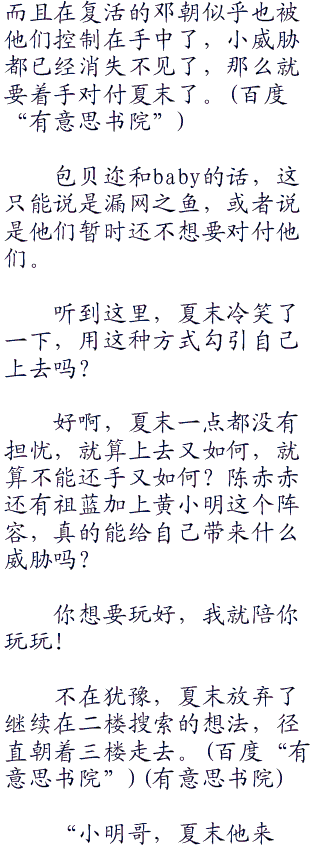 而且在复活的邓朝似乎也被
他们控制在手中了，小威胁
都已经消失不见了，那么就
要着手对付夏末了。(百度
“有意思书院”)
包贝迩和baby的话，这
只能说是漏网之鱼，或者说
是他们暂时还不想要对付他
们。
听到这里，夏末冷笑了
一下，用这种方式勾引自己
上去吗？
好啊，夏末一点都没有
担忧，就算上去又如何，就
算不能还手又如何？陈赤赤
还有祖蓝加上黄小明这个阵
容，真的能给自己带来什么
威胁吗？
你想要玩好，我就陪你
玩玩！
不在犹豫，夏末放弃了
继续在二楼搜索的想法，径
直朝着三楼走去。(百度“有
意思书院”)(有意思书院)
“小明哥，夏末他来